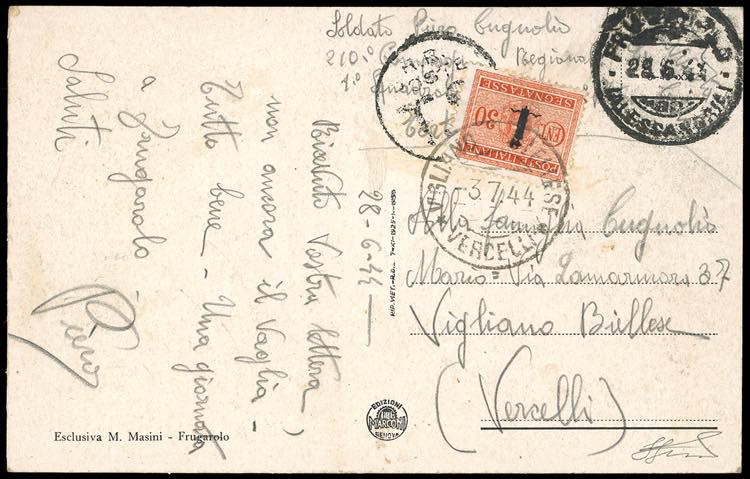 Soldato Piero Cugnolio
210.°
1.°
FRUGAROLO
28.6.44
(ALESSANDRIA)
SEGNATASSE
CENT. 30
POSTE ITALIANE
VIGLIANO BIELLESE
-3.7.44
VERCELLI
Cugnolio
Mario Via Lamarmora 37
Vigliano Biellese
(Vercelli)
Ricevuto Vostra lettera,
non ancora il Vaglia -
Tutto bene - Una giornata
a Frugarolo -
Saluti
Piero
28-6-44
EDIZIONI
MARCONI
GENOVA
Esclusiva M. Masini - Frugarolo